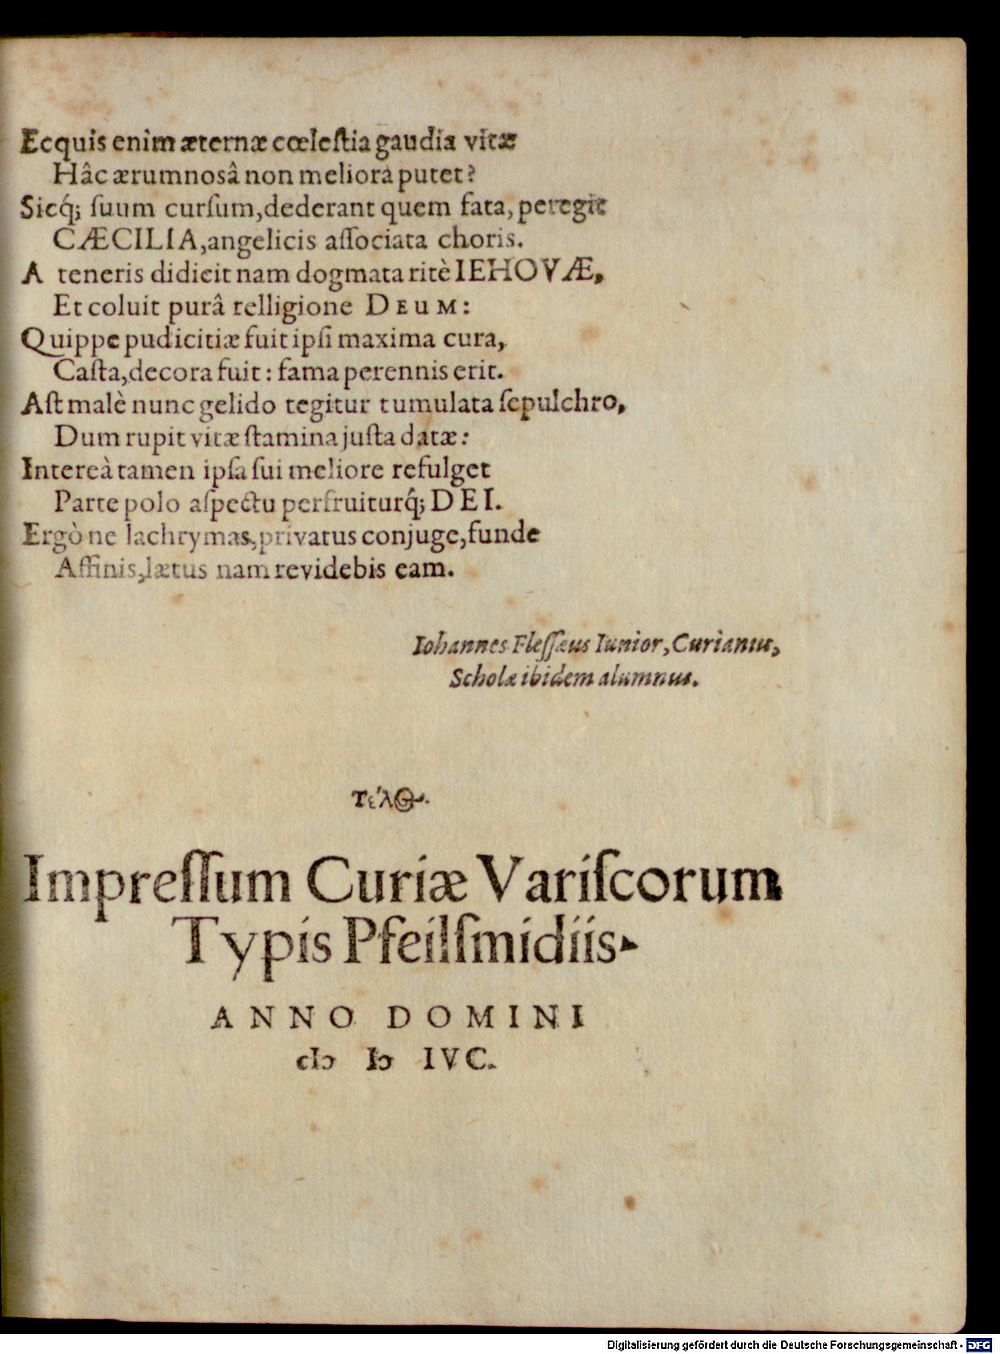 Ecquis enim æternæ cœleſtia gaudia vitæ
Hâc ærumnosâ non meliora putet?
Sicq́; ſuum curſum, dederant quem fata, peregit
CÆCILIA, angelicis aſſociata choris.
A teneris didicit nam dogmata ritè IEHOVÆ,
Et coluit purâ relligione DEUM:
Quippe pudicitiæ fuit ipſi maxima cura,
Caſta, decora fuit: fama perennis erit.
Aſt malè nunc gelido tegitur tumulata ſepulchro,
Dum rupit vitæ ſtamina juſta datæ:
Intereà tamen ipſa ſui meliore refulget
Parte polo aſpectu perfruiturq́; DEI.
Ergò ne lachrymas, privatus conjuge, funde
Affinis, lætus nam revidebis eam.
Iohannes Fleſſæus Iunior, Curianus,
Scholæ ibidem alumnus.
τέλϴ.
Impreſſum Curiæ Variſcorum
Typis Pfeilſmidiis
ANNO DOMINI
cIↄ Iↄ IVC.
Digitalisierung gefördert durch die Deutsche Forschungsgemeinschaft - DFG